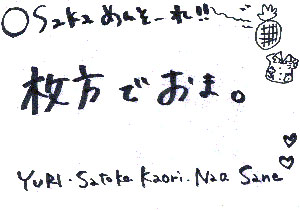 ○Saka めんそーれ!!
枚方でおま。
YURI・Satoko Kaori・Nao Sane